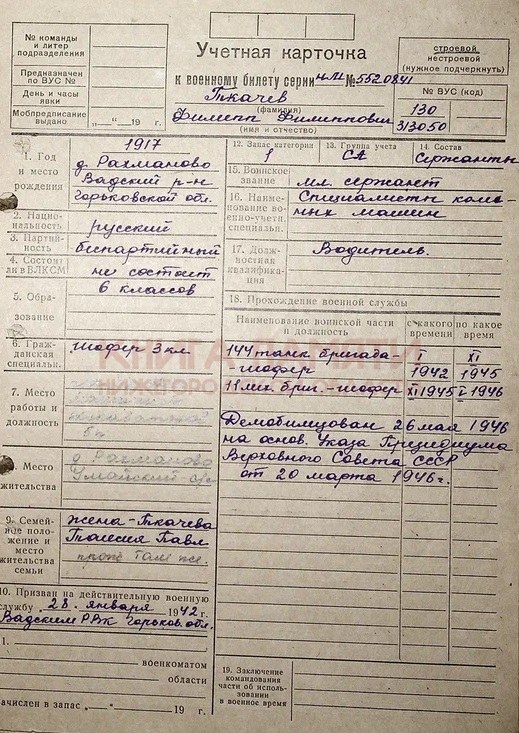 № команды
и литер
подразделения
Предназначен
по ВУС №
День и часы
явки
Мобпредписание
выдано „ — “ 19 г.
Учетная карточка
к военному билету серии НЛ №5520841
Ткачев
(фамилия)
Филипп Филиппович
(имя и отчество)
строевой
нестроевой
(нужное подчеркнуть)
№ ВУС (код)
130
313050
1. Год
и место
рождения
1917
д. Рахманово
Вадский р-н
Горьковской обл.
2. Нацио-
нальность
русский
3. Партий-
ность
беспартийный
4. Состоял
ли в ВЛКСМ
не состоит
5. Обра-
зование
6 классов
6. Граж-
данская
специальн.
шофер 3 кл.
7. Место
работы и
должность
8. Место
жительства
д. Рахманово
9. Семей-
ное поло-
жение и
место
жительства
семьи
жена - Ткачева
Таисия Павл
прож там же.
10. Призван на действительную военную
службу „28“ января 1942 г.
Вадским РВК Горьков. обл.
1.
военкоматом
области
ачислен в запас „ — “ 19 г.
12. Запас категории
1
13. Группа учета
СА
14. Состав
Сержантн
15. Воинское
звание
мл. сержант
16. Наиме-
нование во-
енно-учетн.
специальн.
Специалисты колес-
ных машин
17. Долж-
ностная
квалифика-
ция
Водитель.
18. Прохождение военной службы
Наименование воинской части
и должность
с какого
время
по какое
время
144 танк. бригада - I XI
шофер 1942 1945
11 мин. бриг - шофер XI 1945 V 1946
Демобилизован 26 мая 1946
на основ. Указа Президиума
Верховного Совета СССР
от 20 марта 1946 г.
19. Заключение
командования
части об исполь-
зовании
в военное время
КНИГА ПАМЯТИ